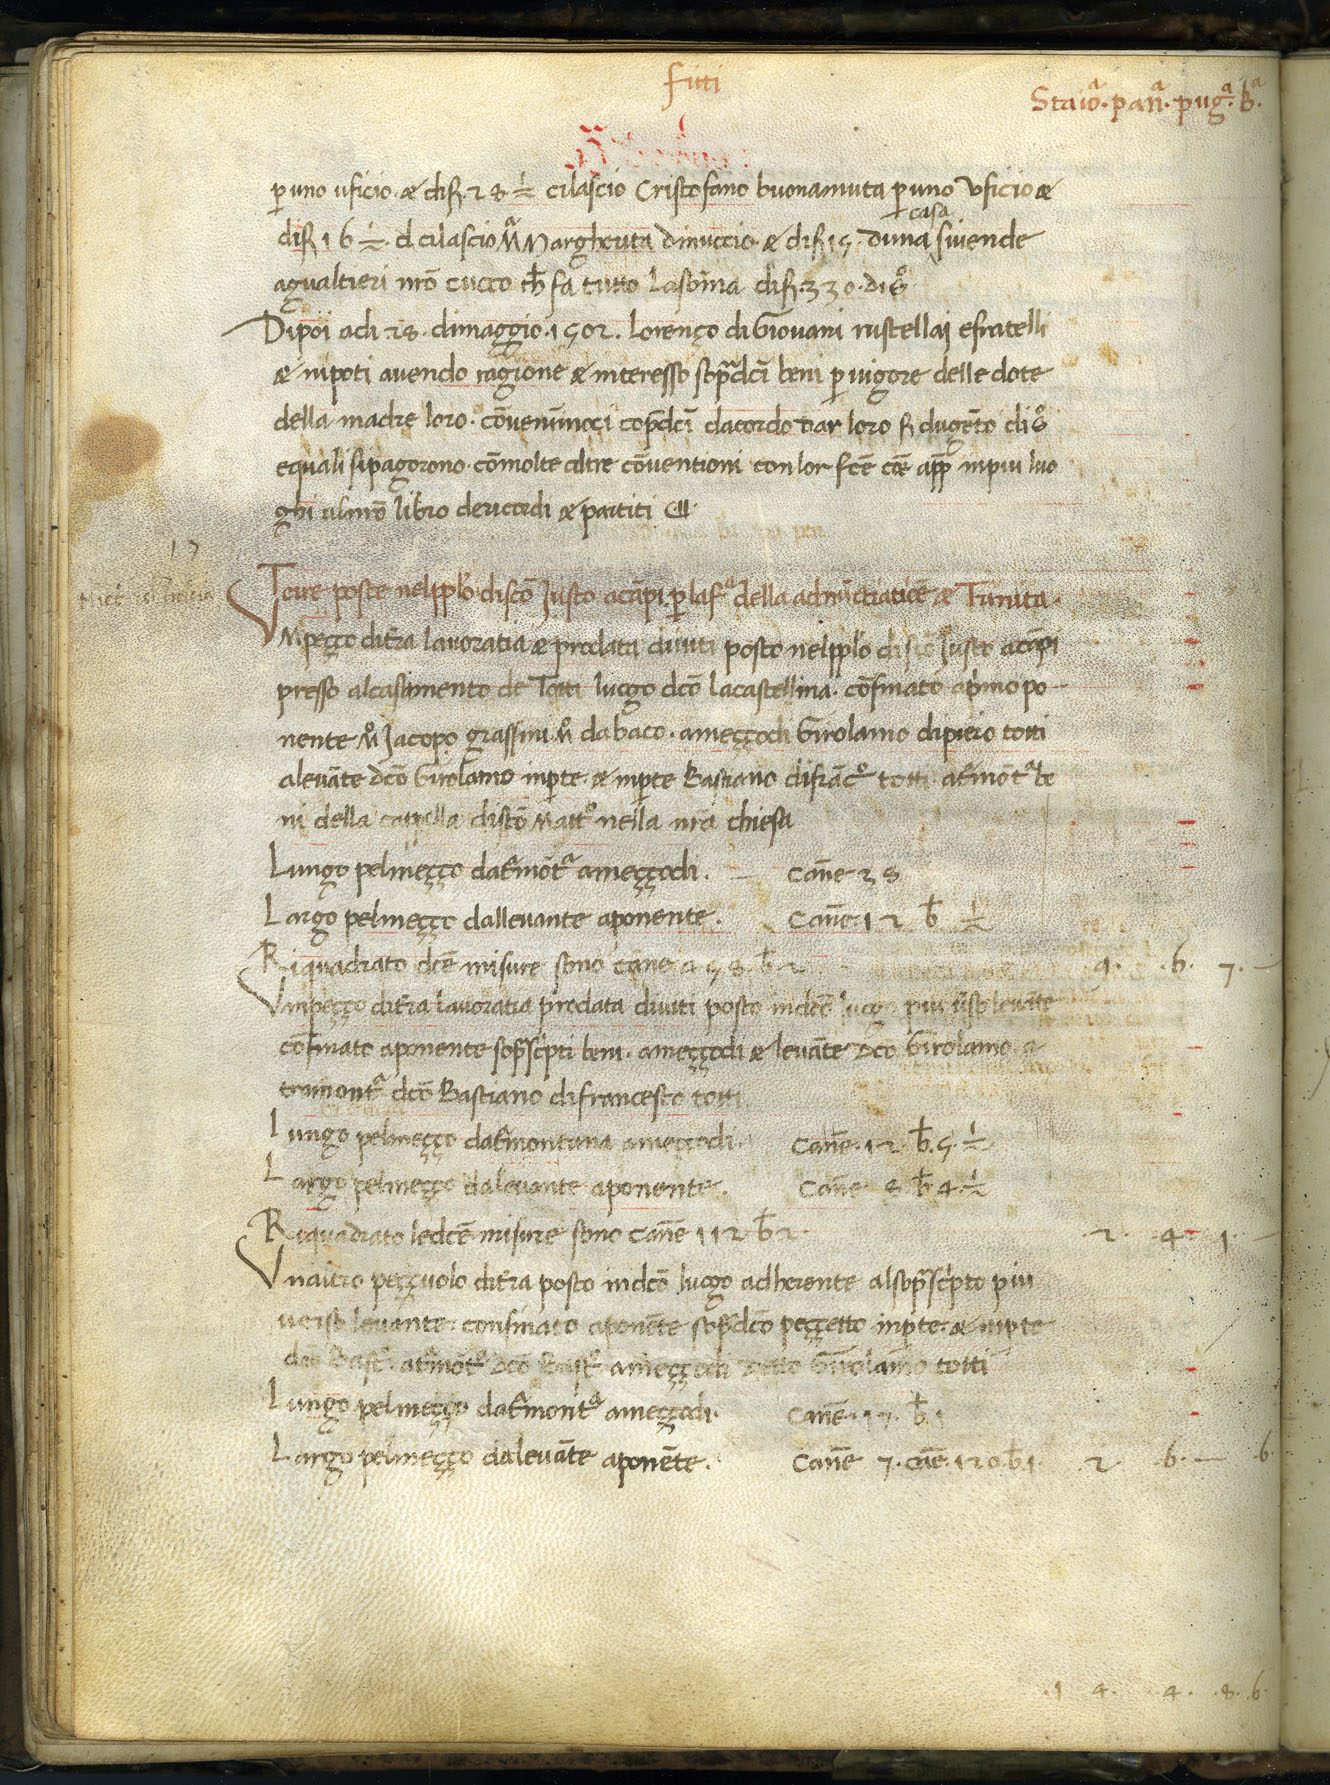 Fitti
Staioª. panª. pugª. bª.
p uno uficio. & di f. 28 ½ cilascio Cristofano buonamuta p uno Vficio &
di f 16 ½. cilascio Mª Margherita dinuccio. & di f 15. duna casa sivende
agualtieri nr̄o cucco ch̄ fa tutto lasōma di f. 330. di sº.
Dipoi adi 28. dimaggio. 1502. Lorenço di Giovani rustellaj efratelli
& nipoti avendo ragione & interesse sopradc̄i beni p vigore delle dote
della madre loro. cōvenimoci copdc̄i dacordo dar loro f dugēto di sº
equali sipagorono. cōmolte altre cōventioni con lor fc̄e cōe app̄ inpiu luo
ghi alnrō libro dericordi & partiti
17
Terre poste nelpplo. discō Justo acāpi p lafª della adnūctiatiōe & Trinita.
Vnpeçço ditr̄a lavoratia & prodata diviti posto nelpplo di scō Justo acāpi
presso alcasamento de Totti luogo dcō lacastellina. cōfinato apmo po
nente Mº Jacopo grassini Mº dabaco. ameççodi Girolamo dipiero totti
alevāte dcō Girolamo inpte. & inpte Bastiano difrācº totti. atr̄mōtª be
ni della cappella discō Mattº nella nrā chiesa
Lungo pelmeçço datr̄mōtª ameççodi. Cane 38
Largo pelmeçço dallevante aponente. Cane. 12 b ½
Riquadrato dcē misure sono cane 458 b 2 9. .6. 7. —
Vnpeçço ditr̄a lavoratia prodata diviti posto indcō luogo piu vso levāte
cōfinato aponente soprascpti beni. ameççodi & levāte dcō Girolamo. a
tramontª dcō Bastiano difrancesco totti
Lungo pelmeçço datr̄montana ameççodi. Cane. 12. b. 5 ½
Largo pelmeçço dalevante aponente. Cane 8 b 4 ½
Riquadrato ledcē misure sono Cane 112 b 2. 2. 4 1 —
Vnaltro peççuolo ditr̄a posto indcō luogo adherente alsoprascpto piu
verso levante. confinato aponēte sopradcō peççetto inpte. & inpte
dcō Bastº. atr̄mōtª dcō Bastº ameççodi detto Girolamo totti
Lungo pelmeçço datr̄montª ameççodi. Cane. 17. b. 1
Largo pelmeçço dalevāte aponēte. Cane 7. cane. 120. b. 1. 2 .6. — .6
.1 4. 4. .8. 6.